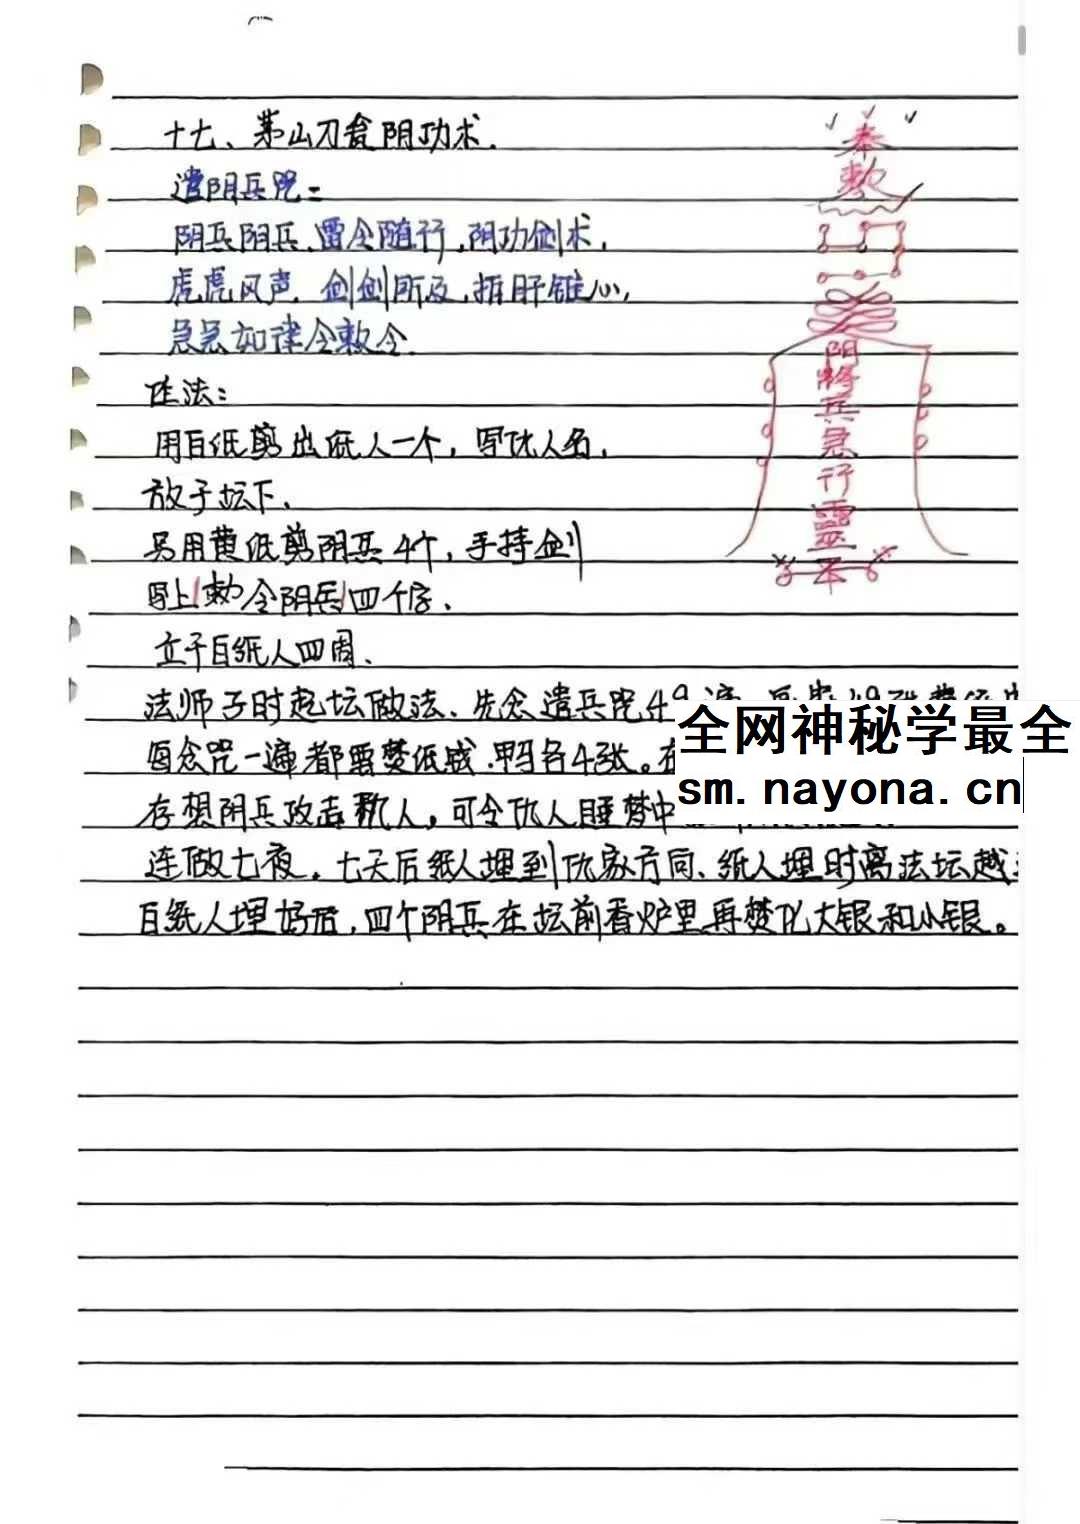 十七、茅山刀仓阴功术.
遣阴兵咒:
阴兵阴兵、雷令随行,阴功剑术,
虎虎风声.剑剑所及,折肝锥心,
急急如律令敕令.
阵法:
用白纸剪出纸人一个,写仇人名,
放于坛下.
另用黄纸剪阴兵4个,手持剑
写上敕令阴兵四个字.
立于白纸人四周.
法师子时起坛做法、先念遣兵咒49遍
每念咒一遍都需焚纸钱.甲马各4张。在
存想阴兵攻击敌人,可令仇人睡梦中
连做七夜.七天后纸人埋到仇家方向、纸人埋时离法坛越
白纸人埋好后,四个阴兵在坛前香炉里再焚化大银和小银。
奉
敕
阴
将
兵
急
行
靈
全网神秘学最全
sm.nayona.cn